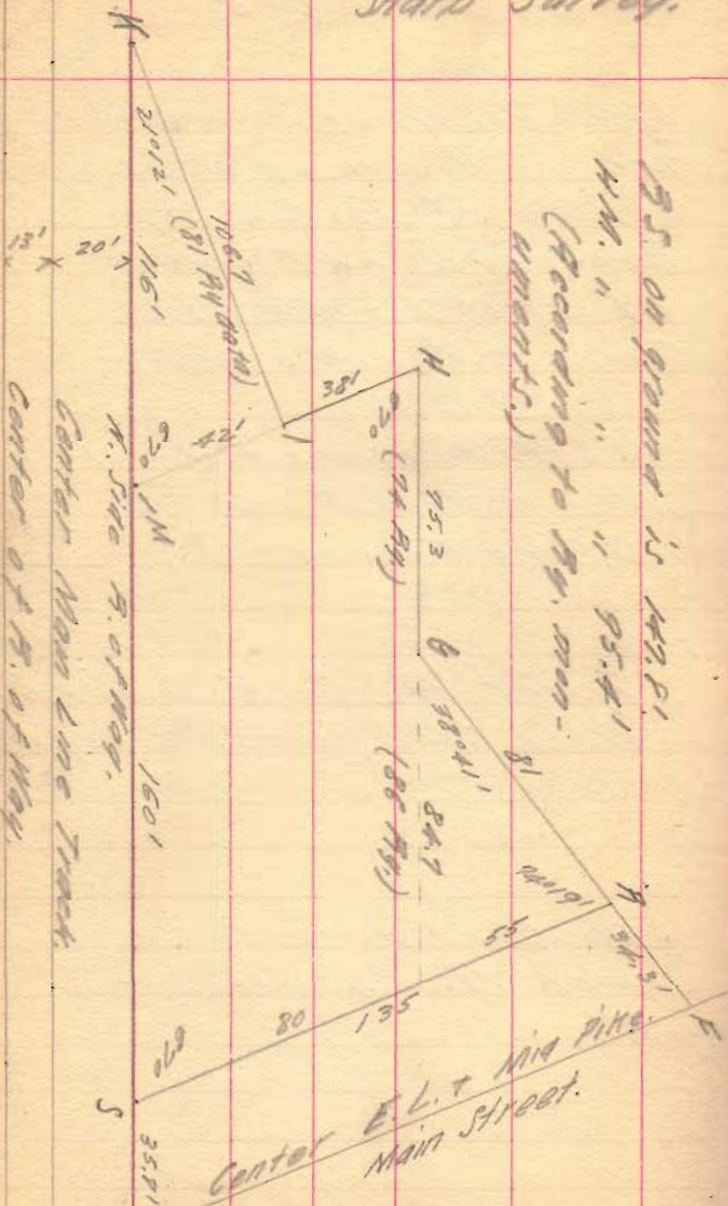 Sharp Survey.
BS on ground is 147.81
HM. " " " 95.41
(According to Ry. mon-
uments.)
K
21°12'
116'
106.7
(81 Ry data)
13'
20'
38'
L
42'
67°
M
H
67°
95.3
(94 Ry.)
G
38°41'
81
84.7
(86 Ry.)
74°19'
A
34.3'
F
55
135
80
67°
S
35.81
160'
N. Side R. of Way.
Center Main Line Track.
Center of R. of Way.
Center E.L. & Mid Pike.
Main Street.